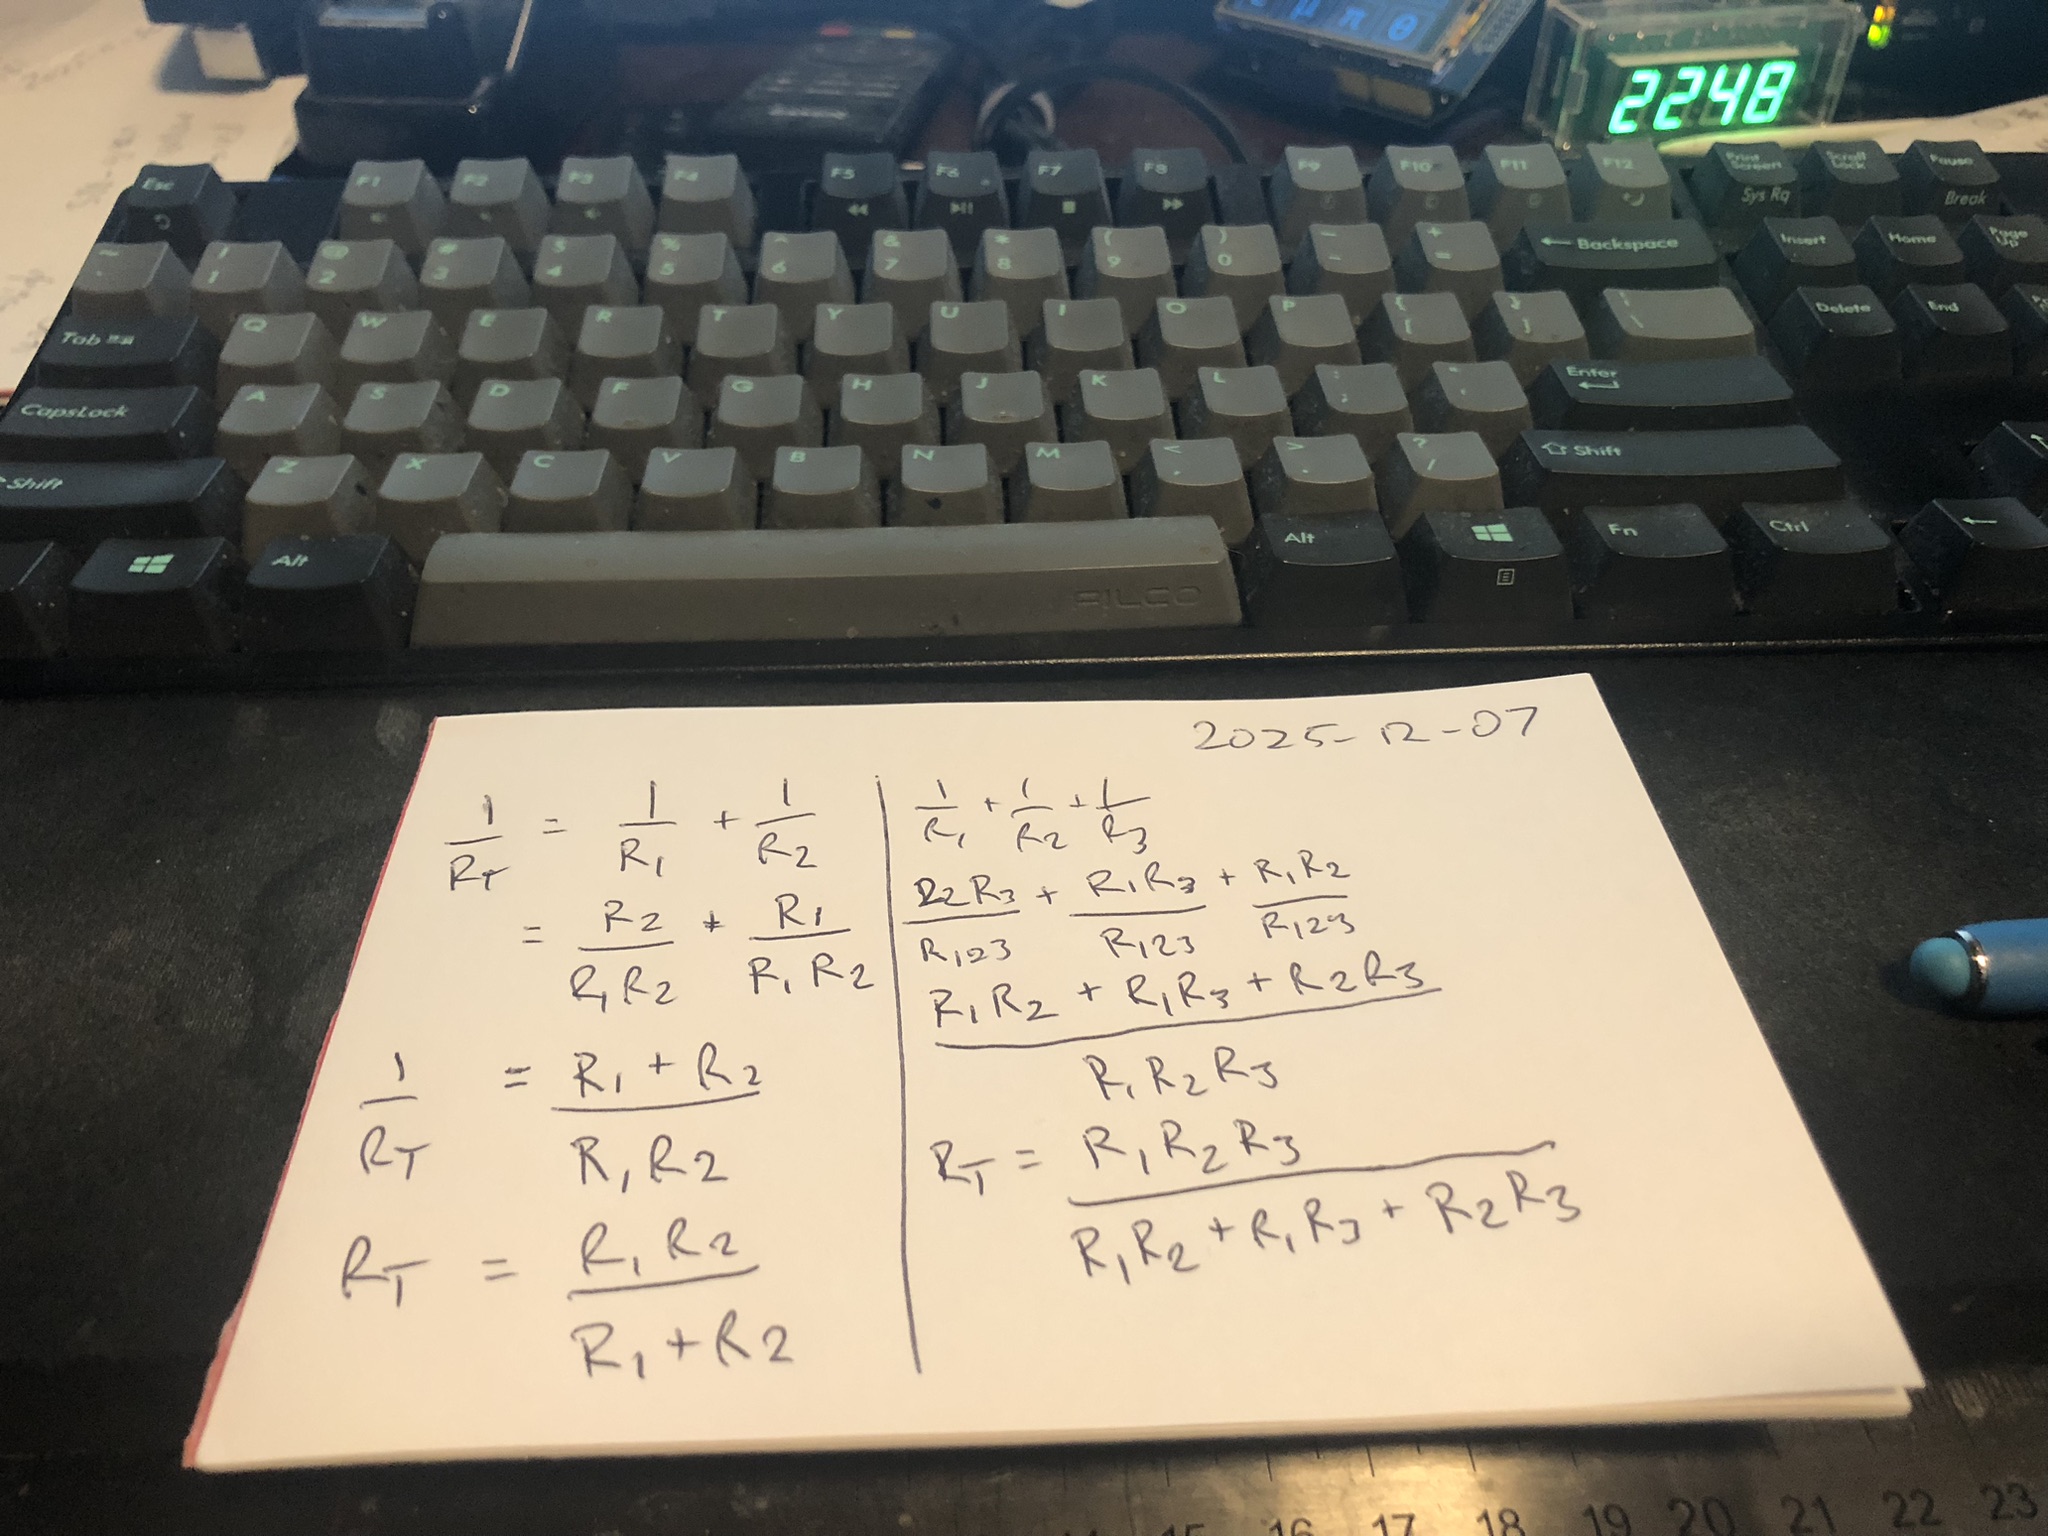 μ π θ
2248
Esc F1 F2 F3 F4 F5 F6 F7 F8 F9 F10 F11 F12 Print Screen Sys Rq Scroll Lock Pause Break
~ ! 1 @ 2 # 3 $ 4 % 5 ^ 6 & 7 * 8 ( 9 ) 0 - + = ← Backspace Insert Home Page Up
Tab Q W E R T Y U I O P { [ } ] | \ Delete End
CapsLock A S D F G H J K L : ; " ' Enter
Shift Z X C V B N M < , > . ? / Shift
Alt FILCO Alt Fn Ctrl ←
2025-12-07
1/R_T = 1/R1 + 1/R2
= R2/R1R2 + R1/R1R2
1/R_T = R1 + R2/R1R2
R_T = R1R2/R1+R2
1/R1 + 1/R2 + 1/R3
R2R3/R123 + R1R3/R123 + R1R2/R123
R1R2 + R1R3 + R2R3/R1R2R3
R_T = R1R2R3/R1R2 + R1R3 + R2R3
15 16 17 18 19 20 21 22 23